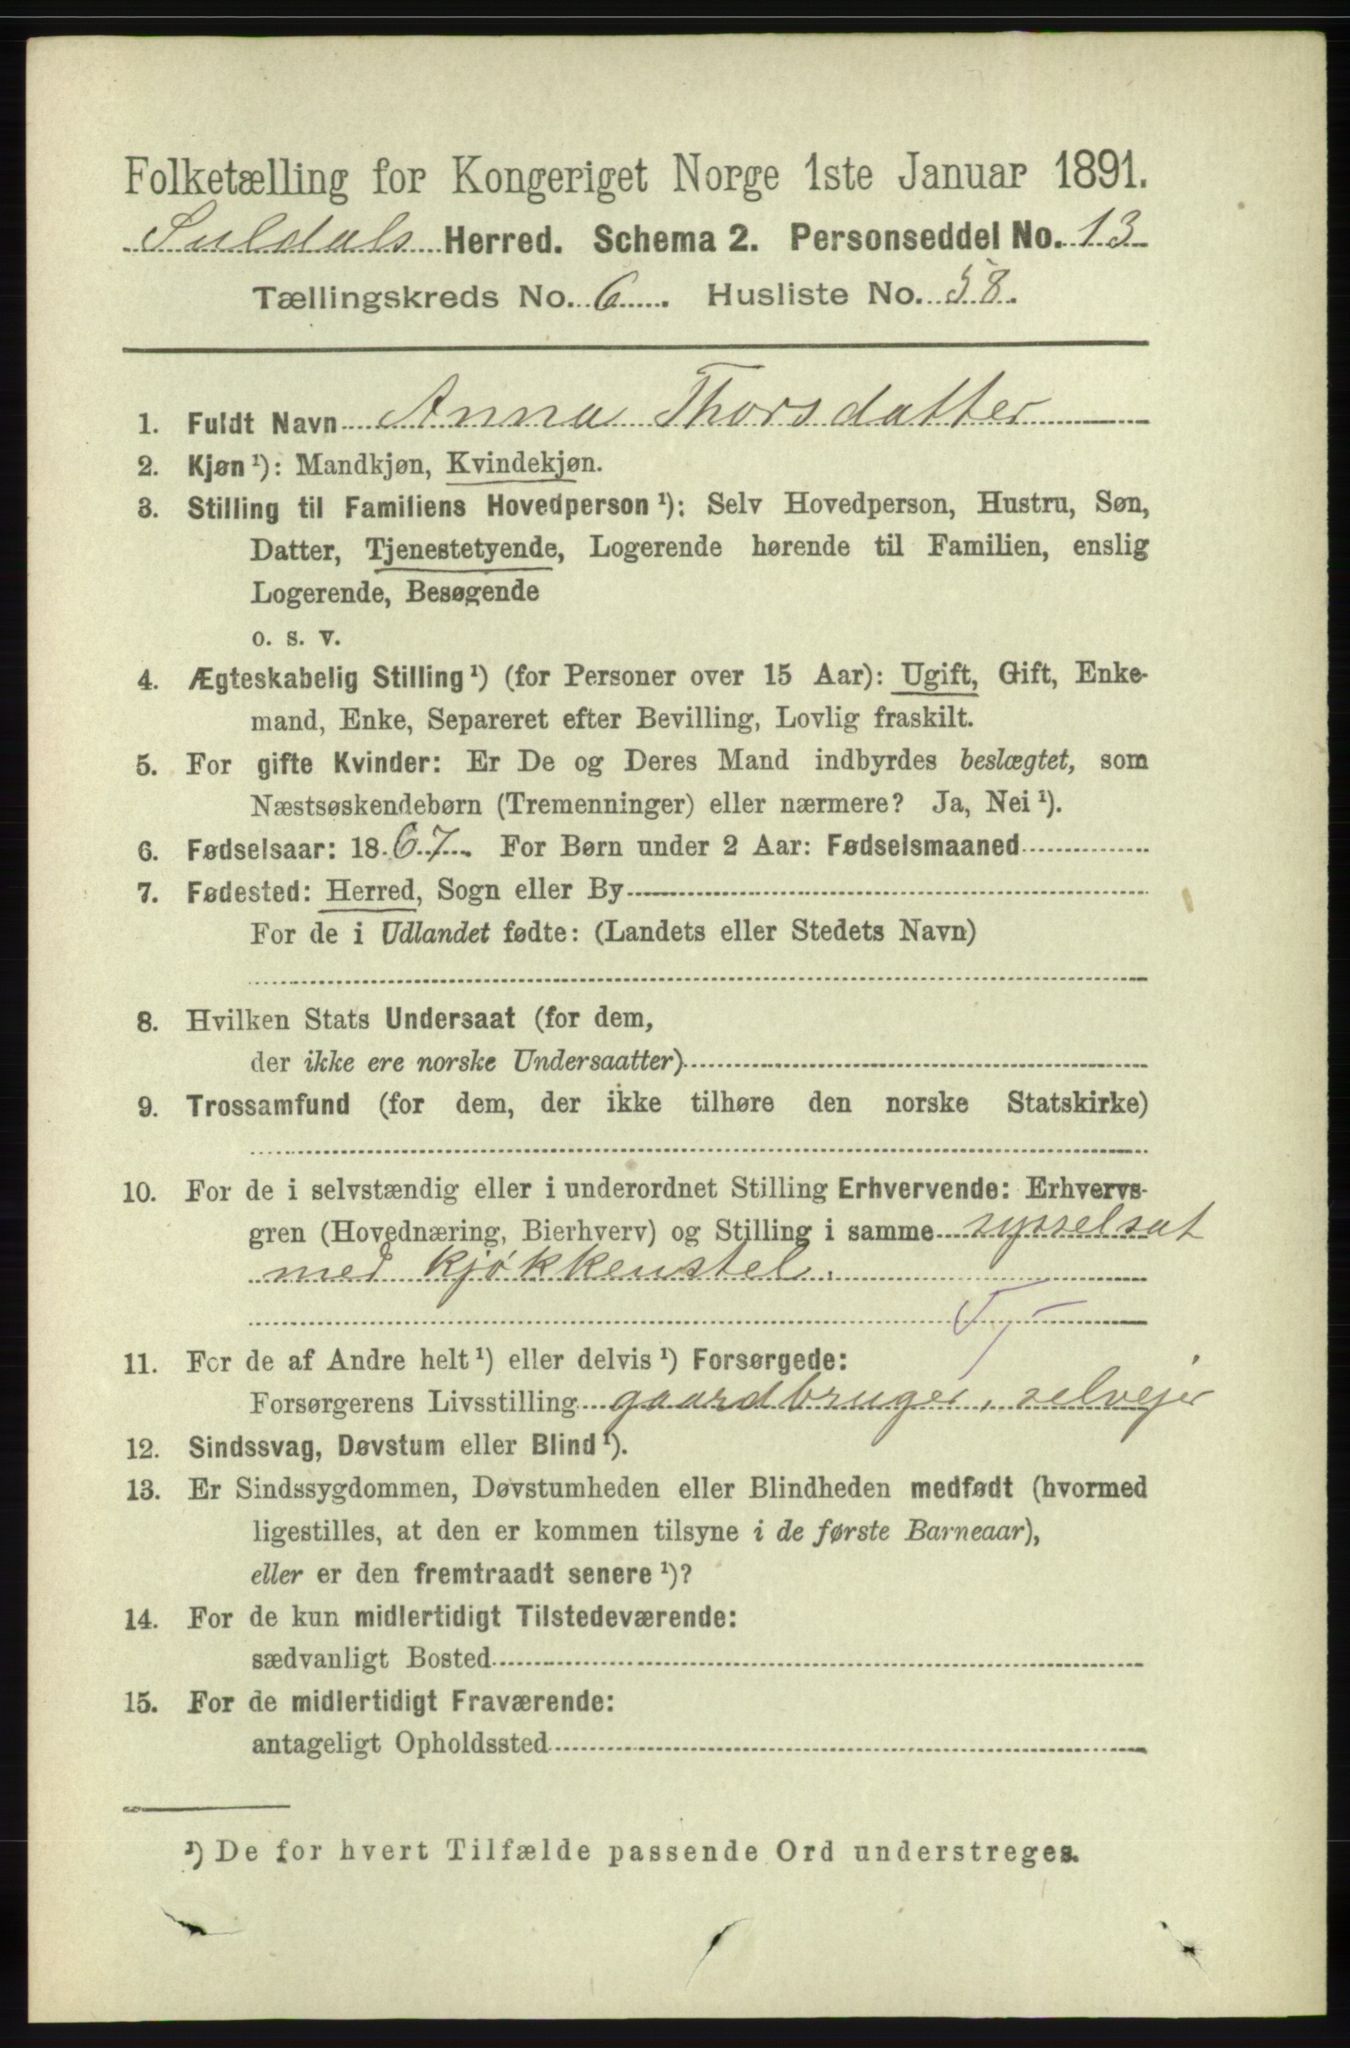 Folketælling for Kongeriget Norge 1ste Januar 1891.
Suldals Herred. Schema 2. Personseddel No. 13
Tællingskreds No. 6. Husliste No. 58.
1. Fuldt Navn Anna Thorsdatter
2. Kjøn ¹): Mandkjøn, Kvindekjøn.
3. Stilling til Familiens Hovedperson ¹): Selv Hovedperson, Hustru, Søn,
Datter, Tjenestetyende, Logerende hørende til Familien, enslig
Logerende, Besøgende
o. s. v.
4. Ægteskabelig Stilling ¹) (for Personer over 15 Aar): Ugift, Gift, Enke-
mand, Enke, Separeret efter Bevilling, Lovlig fraskilt.
5. For gifte Kvinder: Er De og Deres Mand indbyrdes beslægtet, som
Næstsøskendebørn (Tremenninger) eller nærmere? Ja, Nei ¹).
6. Fødselsaar: 1867. For Børn under 2 Aar: Fødselsmaaned
7. Fødested: Herred, Sogn eller By
For de i Udlandet fødte: (Landets eller Stedets Navn)
8. Hvilken Stats Undersaat (for dem,
der ikke ere norske Undersaatter)
9. Trossamfund (for dem, der ikke tilhøre den norske Statskirke)
10. For de i selvstændig eller i underordnet Stilling Erhvervende: Erhvervs-
gren (Hovednæring, Bierhverv) og Stilling i samme sysselsat
med kjøkkenstel.
11. For de af Andre helt ¹) eller delvis ¹) Forsørgede:
Forsørgerens Livsstilling gaardbruger, selvejer
12. Sindssvag, Døvstum eller Blind ¹).
13. Er Sindssygdommen, Døvstumheden eller Blindheden medfødt (hvormed
ligestilles, at den er kommen tilsyne i de første Barneaar),
eller er den fremtraadt senere ¹)?
14. For de kun midlertidigt Tilstedeværende:
sædvanligt Bosted
15. For de midlertidigt Fraværende:
antageligt Opholdssted
¹) De for hvert Tilfælde passende Ord understreges.